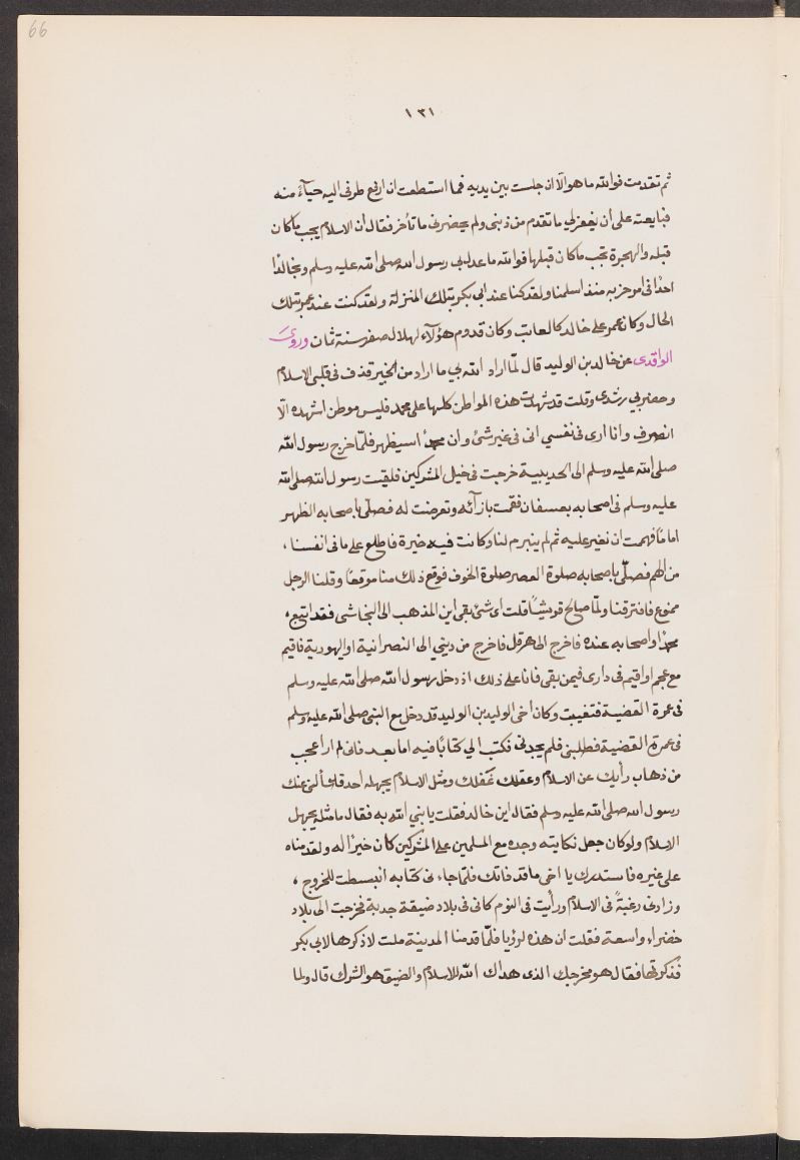 66
١٣١
ثم تقدمت فوالله ما هو الا ان جلست بين يديه فما استطعت ان ارفع طرفى اليه حيآءً منه
فبايعته على أن يغفرلي ما تقدم من ذنبى ولم يحضرنى ما تأخر فقال ان الاسلام يجب ماكان
قبله والهجرة تجب ماكان قبلها فوالله ما عدل بى رسول الله صلى الله عليه وسلم وبخالدٍ
احدًا فى امر حزبه منذ اسلمنا ولقد كنا عند ابى بكر بتلك المنزلة ولقد كنت عند عمر بتلك
الحال وكان عمر على خالد كالعاتب وكان قدوم هؤلآء لهلال صفر سنة ثمان وروى
الواقدى عن خالد بن الوليد قال لمّا اراد الله بي ما اراد من الخير قذف فى قلبى الاسلام
وحضرني رشدى وقلت قد شهدت هذه المواطن كلها على محمد فليس موطن اشهده الّا
انصرف وانا ارى فى نفسي انى فى غير شئ وان محمدًا سيظهر فلمّا خرج رسول الله
صلى الله عليه وسلم الى الحديبية خرجت فى خيل المشركين فلقيت رسول الله صلى الله
عليه وسلم فى اصحابه بعسفان فقمت بازآئه وتعرضت له فصلّى باصحابه الظهر
امامًا فهمت ان نغير عليه ثم لم ينبرم لنا وكانت فيه خيرة فاطلع على ما فى انفسنا ،
من الهم فصلّى باصحابه صلوة العصر صلوة الخوف فوقع ذلك منا موقعًا وقلنا الرجل
ممنوع فافترقنا ولمّا صالح قريشًا قلت اى شئ بقى اين المذهب الى النجاشى فقد اتبع ،
محمدًا واصحابه عنده فاخرج الى هرقل فاخرج من ديني الى النصرانية او اليهودية فاقيم
مع عجم او اقيم فى دارى فيمن بقى فانا على ذلك اذ دخل رسول الله صلى الله عليه وسلم
فى عمرة القضية فتغيبت وكان اخى الوليد بن الوليد قد دخل مع النبى صلى الله عليه وسلم
فى عمرة القضية فطلبنى فلم يجدنى فكتب الي كتابًا فيه اما بعد فانى لم ار اعجب
من ذهاب رأيك عن الاسلام وعقلك عقلك ومثل الاسلام يجهله احد قد سألنى عنك
رسول الله صلى الله عليه وسلم فقال اين خالد فقلت يأتي الله به فقال ما مثله يجهل
الاسلام ولو كان جعل نكايته وجده مع المسلمين على المشركين كان خيرًا له ولقدمناه
على غيره فاستدرك يا اخى ما قد فاتك فلمّا جاءنى كتابه انبسطت للخروج ،
وزادنى رغبةً فى الاسلام ورأيت فى النوم كانى فى بلاد ضيقة جدبة فخرجت الى بلاد
خضراء واسعة فقلت ان هذه لرؤيا فلمّا قدمنا المدينة قلت لاذكرها لابى بكر
فذكرتها فقال هو مخرجك الذى هداك الله للاسلام والضيق هو الشرك قال ولما